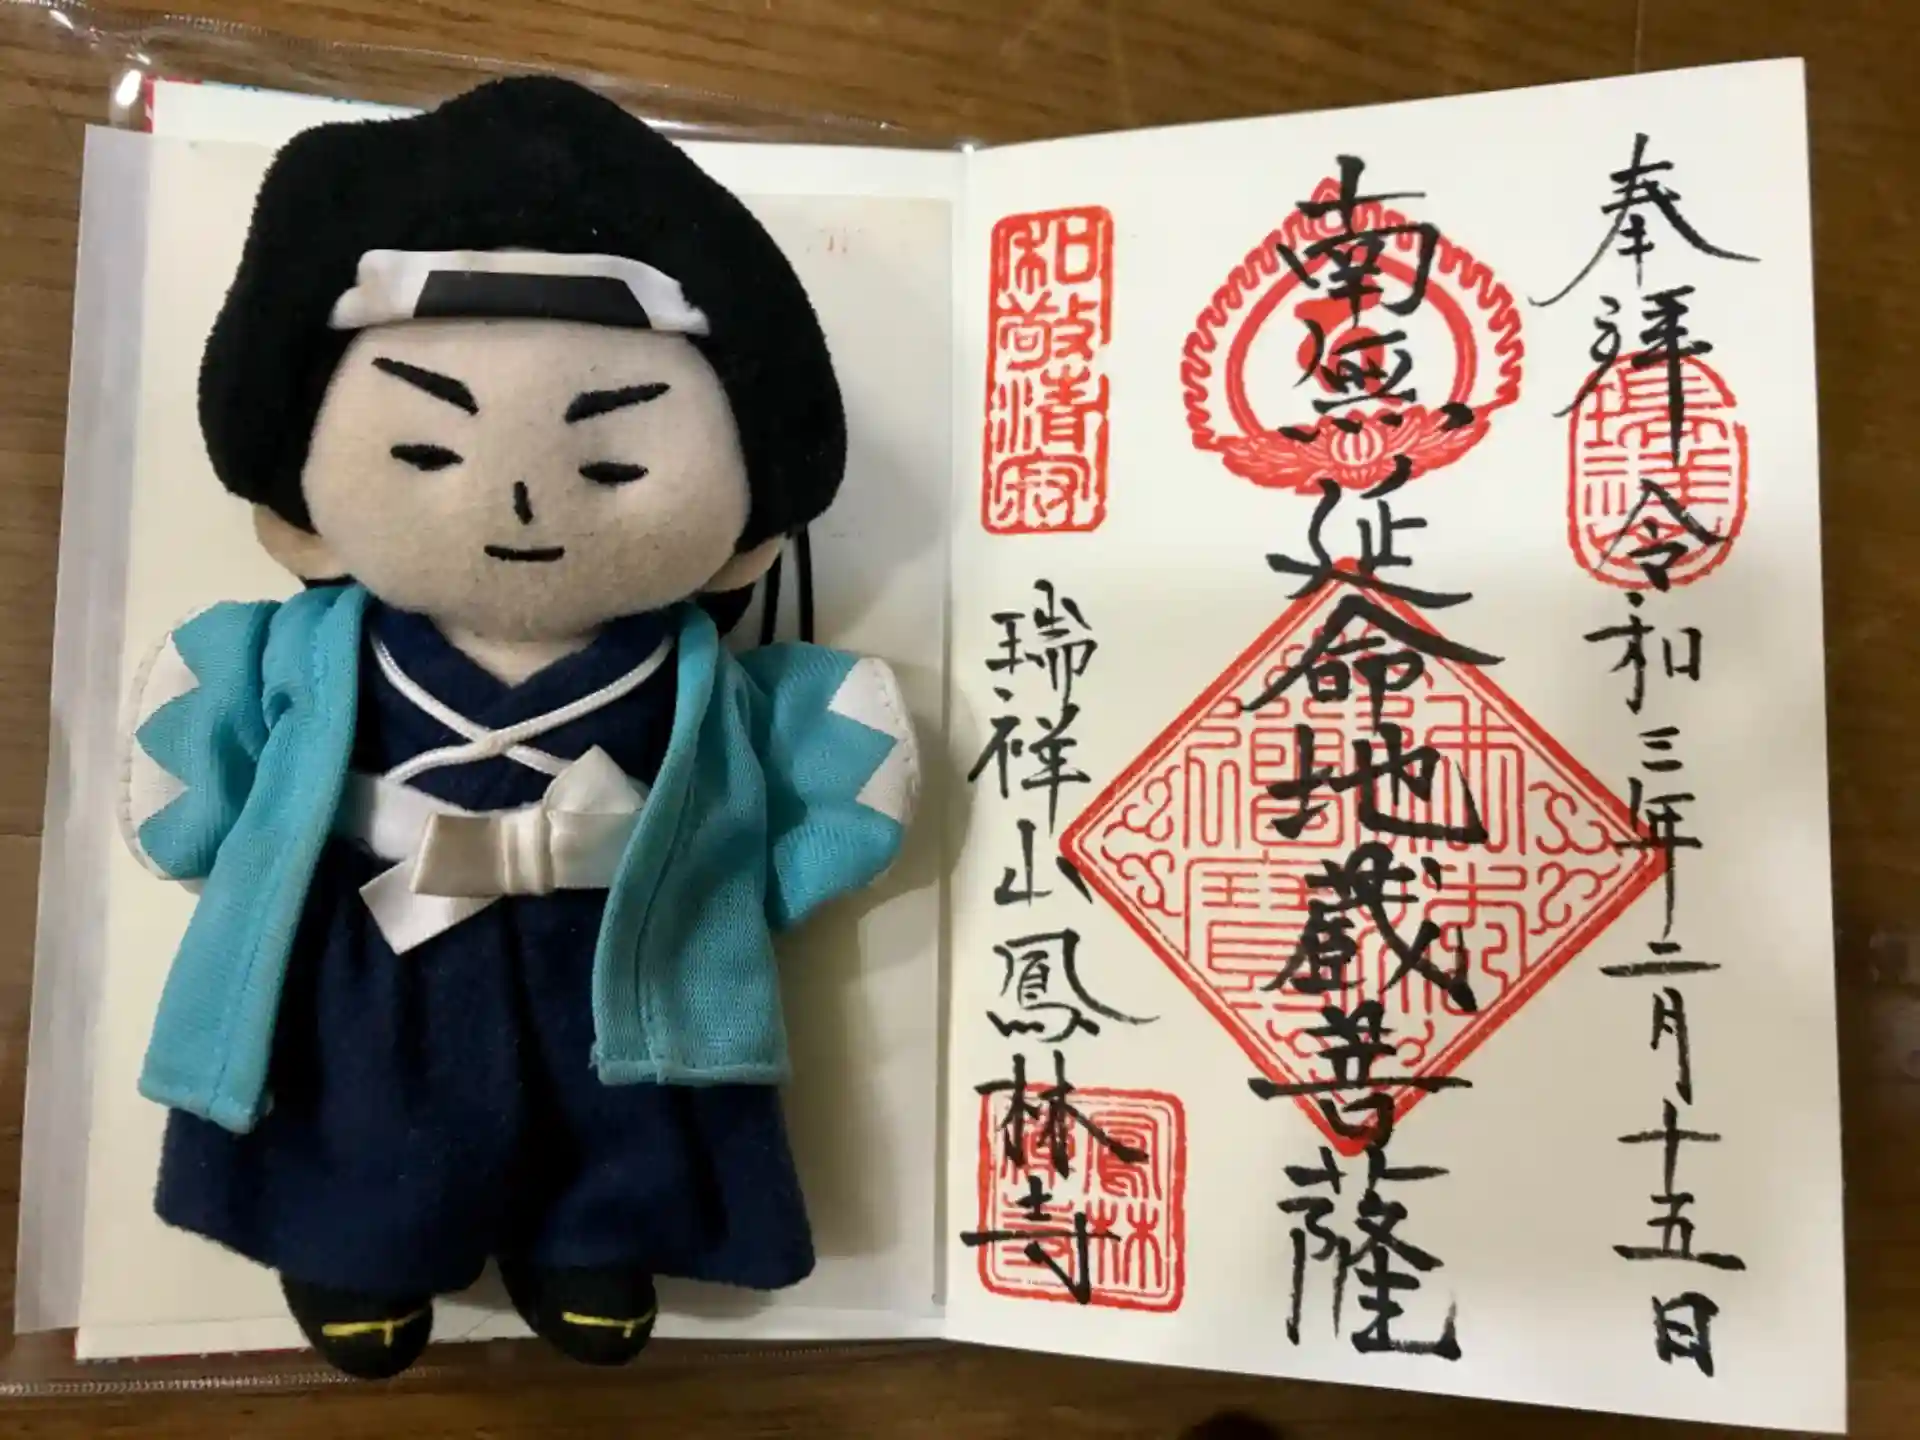 奉拝 令和三年二月十五日
瑞祥
南無延命地蔵菩薩
佛法僧寶
和敬清寂
瑞祥山鳳林寺
鳳林禅寺